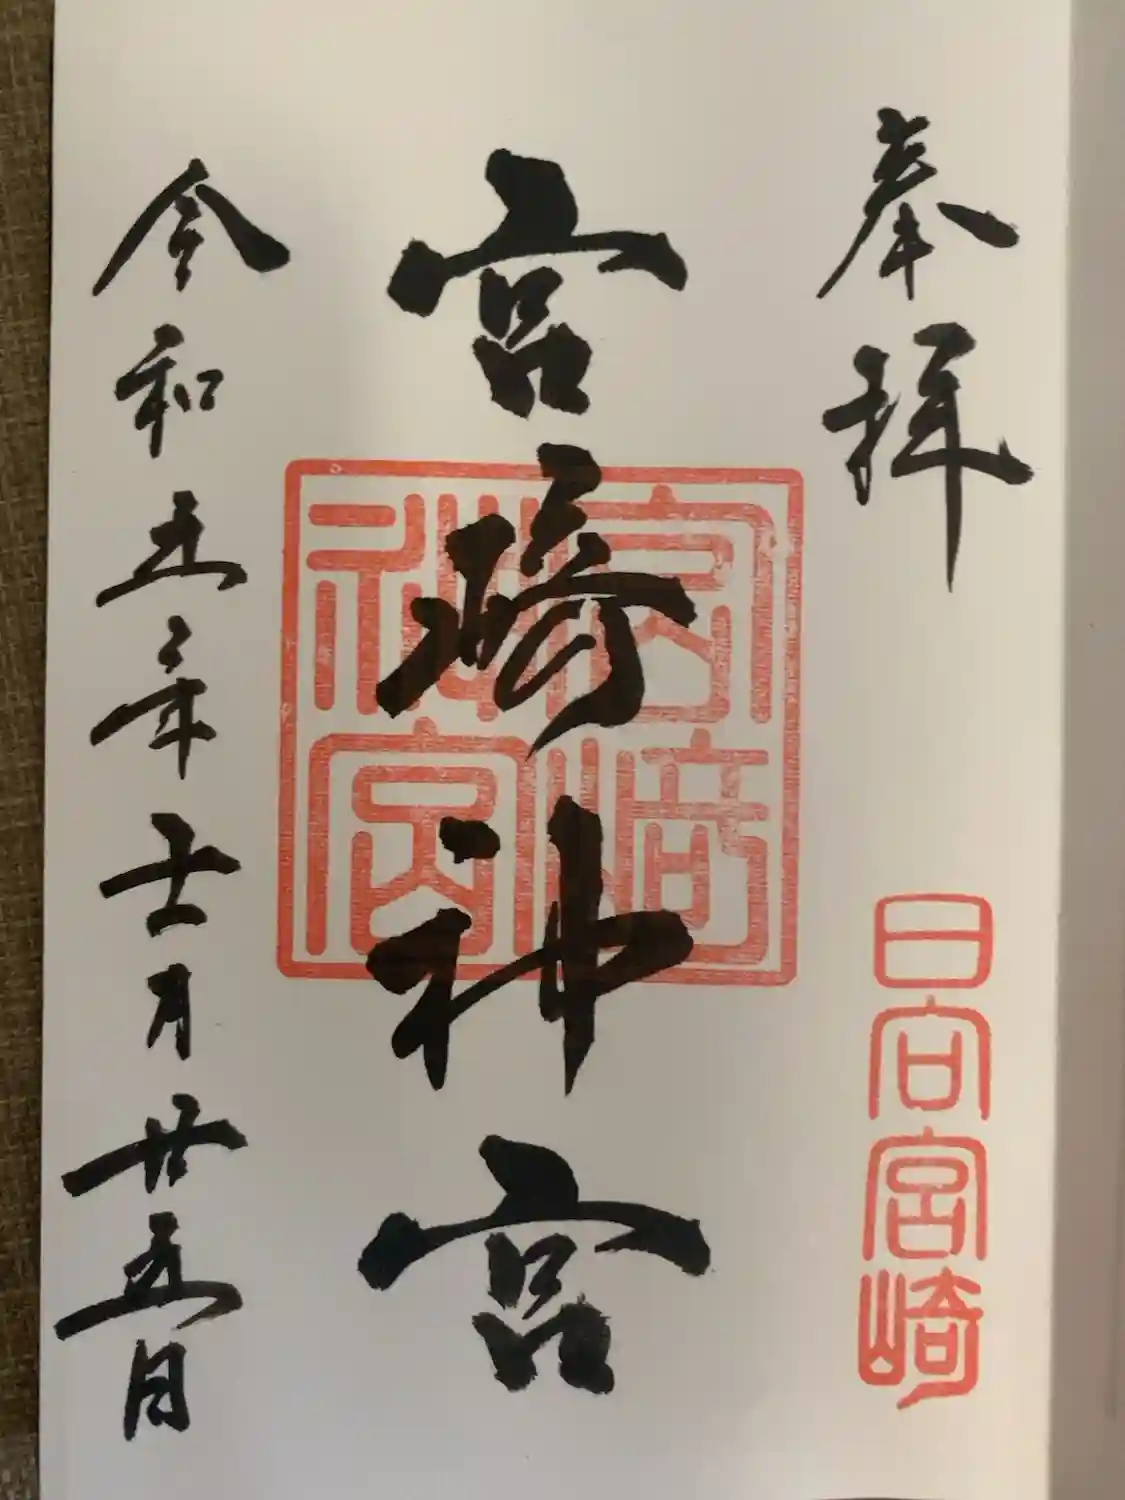 奉拝
日向宮崎
宮崎神宮
宮崎神宮
令和五年十一月廿五日